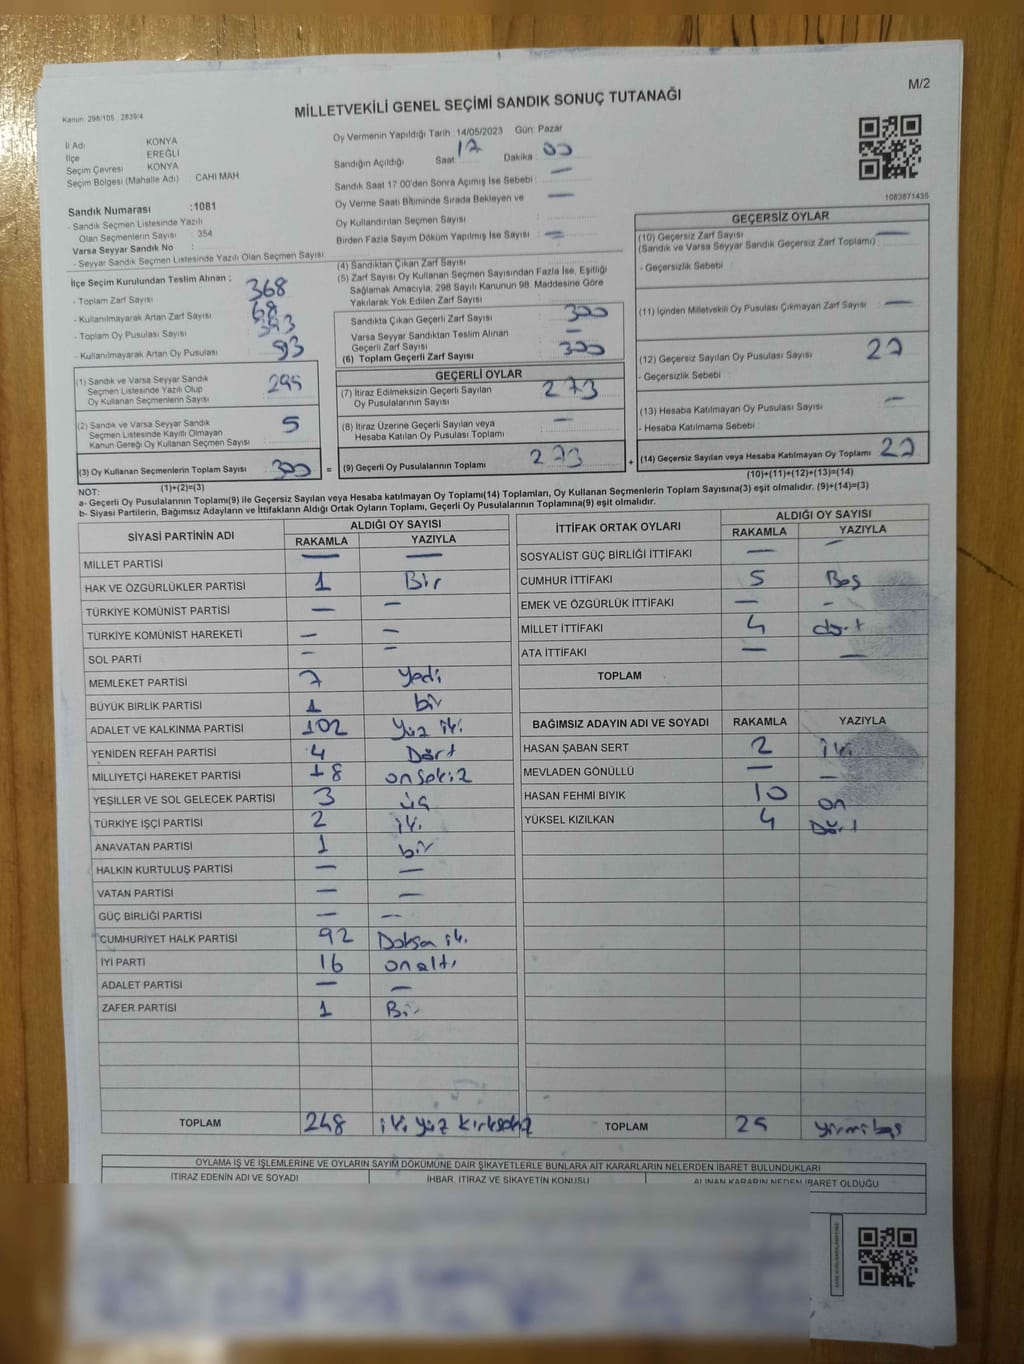 M/2
Kanun: 298/105 , 2839/4
MİLLETVEKİLİ GENEL SEÇİMİ SANDIK SONUÇ TUTANAĞI
İl Adı KONYA
İlçe EREĞLİ
Seçim Çevresi KONYA
Seçim Bölgesi (Mahalle Adı) CAHI MAH
Sandık Numarası :1081
- Sandık Seçmen Listesinde Yazılı
Olan Seçmenlerin Sayısı : 354
Varsa Seyyar Sandık No :
- Seyyar Sandık Seçmen Listesinde Yazılı Olan Seçmen Sayısı
Oy Vermenin Yapıldığı Tarih :14/05/2023 Gün: Pazar
Sandığın Açıldığı Saat: 17 Dakika : 00
Sandık Saat 17:00'den Sonra Açımış İse Sebebi : —
Oy Verme Saati Bitiminde Sırada Bekleyen ve
Oy Kullandırılan Seçmen Sayısı : —
Birden Fazla Sayım Döküm Yapılmış İse Sayısı : —
1083871435
İlçe Seçim Kurulundan Teslim Alınan ;
- Toplam Zarf Sayısı 368
- Kullanılmayarak Artan Zarf Sayısı 68
- Toplam Oy Pusulası Sayısı 393
- Kullanılmayarak Artan Oy Pusulası 93
(1) Sandık ve Varsa Seyyar Sandık
Seçmen Listesinde Yazılı Olup
Oy Kullanan Seçmenlerin Sayısı 295
(2) Sandık ve Varsa Seyyar Sandık
Seçmen Listesinde Kayıtlı Olmayan
Kanun Gereği Oy Kullanan Seçmen Sayısı 5
(3) Oy Kullanan Seçmenlerin Toplam Sayısı 300
(1)+(2)=(3)
(4) Sandıktan Çıkan Zarf Sayısı
(5) Zarf Sayısı Oy Kullanan Seçmen Sayısından Fazla İse, Eşitliği
Sağlamak Amacıyla, 298 Sayılı Kanunun 98. Maddesine Göre
Yakılarak Yok Edilen Zarf Sayısı
Sandıkta Çıkan Geçerli Zarf Sayısı 300
Varsa Seyyar Sandıktan Teslim Alınan
Geçerli Zarf Sayısı —
(6) Toplam Geçerli Zarf Sayısı 300
GEÇERLİ OYLAR
(7) İtiraz Edilmeksizin Geçerli Sayılan
Oy Pusulalarının Sayısı 273
(8) İtiraz Üzerine Geçerli Sayılan veya
Hesaba Katılan Oy Pusulası Toplamı —
= (9) Geçerli Oy Pusulalarının Toplamı 273 +
GEÇERSİZ OYLAR
(10) Geçersiz Zarf Sayısı —
(Sandık ve Varsa Seyyar Sandık Geçersiz Zarf Toplamı)
- Geçersizlik Sebebi :
(11) İçinden Milletvekili Oy Pusulası Çıkmayan Zarf Sayısı —
(12) Geçersiz Sayılan Oy Pusulası Sayısı 27
- Geçersizlik Sebebi :
(13) Hesaba Katılmayan Oy Pusulası Sayısı —
- Hesaba Katılmama Sebebi :
(14) Geçersiz Sayılan veya Hesaba Katılmayan Oy Toplamı 27
(10)+(11)+(12)+(13)=(14)
NOT:
a- Geçerli Oy Pusulalarının Toplamı(9) ile Geçersiz Sayılan veya Hesaba katılmayan Oy Toplamı(14) Toplamları, Oy Kullanan Seçmenlerin Toplam Sayısına(3) eşit olmalıdır. (9)+(14)=(3)
b- Siyasi Partilerin, Bağımsız Adayların ve İttifakların Aldığı Ortak Oyların Toplamı, Geçerli Oy Pusulalarının Toplamına(9) eşit olmalıdır.
SİYASİ PARTİNİN ADI ALDIĞI OY SAYISI
RAKAMLA YAZIYLA
MİLLET PARTİSİ — —
HAK VE ÖZGÜRLÜKLER PARTİSİ 1 Bir
TÜRKİYE KOMÜNİST PARTİSİ — —
TÜRKİYE KOMÜNİST HAREKETİ — —
SOL PARTİ — —
MEMLEKET PARTİSİ 7 Yedi
BÜYÜK BİRLİK PARTİSİ 1 bir
ADALET VE KALKINMA PARTİSİ 102 Yüz iki
YENİDEN REFAH PARTİSİ 4 Dört
MİLLİYETÇİ HAREKET PARTİSİ 18 onsekiz
YEŞİLLER VE SOL GELECEK PARTİSİ 3 üç
TÜRKİYE İŞÇİ PARTİSİ 2 iki
ANAVATAN PARTİSİ 1 bir
HALKIN KURTULUŞ PARTİSİ — —
VATAN PARTİSİ — —
GÜÇ BİRLİĞİ PARTİSİ — —
CUMHURİYET HALK PARTİSİ 92 Doksan iki
İYİ PARTİ 16 onaltı
ADALET PARTİSİ — —
ZAFER PARTİSİ 1 Bir
TOPLAM 248 iki yüz kırksekiz
İTTİFAK ORTAK OYLARI ALDIĞI OY SAYISI
RAKAMLA YAZIYLA
SOSYALİST GÜÇ BİRLİĞİ İTTİFAKI — —
CUMHUR İTTİFAKI 5 Beş
EMEK VE ÖZGÜRLÜK İTTİFAKI — —
MİLLET İTTİFAKI 4 dört
ATA İTTİFAKI — —
TOPLAM
BAĞIMSIZ ADAYIN ADI VE SOYADI RAKAMLA YAZIYLA
HASAN ŞABAN SERT 2 iki
MEVLADEN GÖNÜLLÜ — —
HASAN FEHMİ BIYIK 10 on
YÜKSEL KIZILKAN 4 Dört
TOPLAM 25 yirmibeş
OYLAMA İŞ VE İŞLEMLERİNE VE OYLARIN SAYIM DÖKÜMÜNE DAİR ŞİKAYETLERLE BUNLARA AİT KARARLARIN NELERDEN İBARET BULUNDUKLARI
İTİRAZ EDENİN ADI VE SOYADI İHBAR, İTİRAZ VE ŞİKAYETİN KONUSU ALINAN KARARIN NEDEN İBARET OLDUĞU